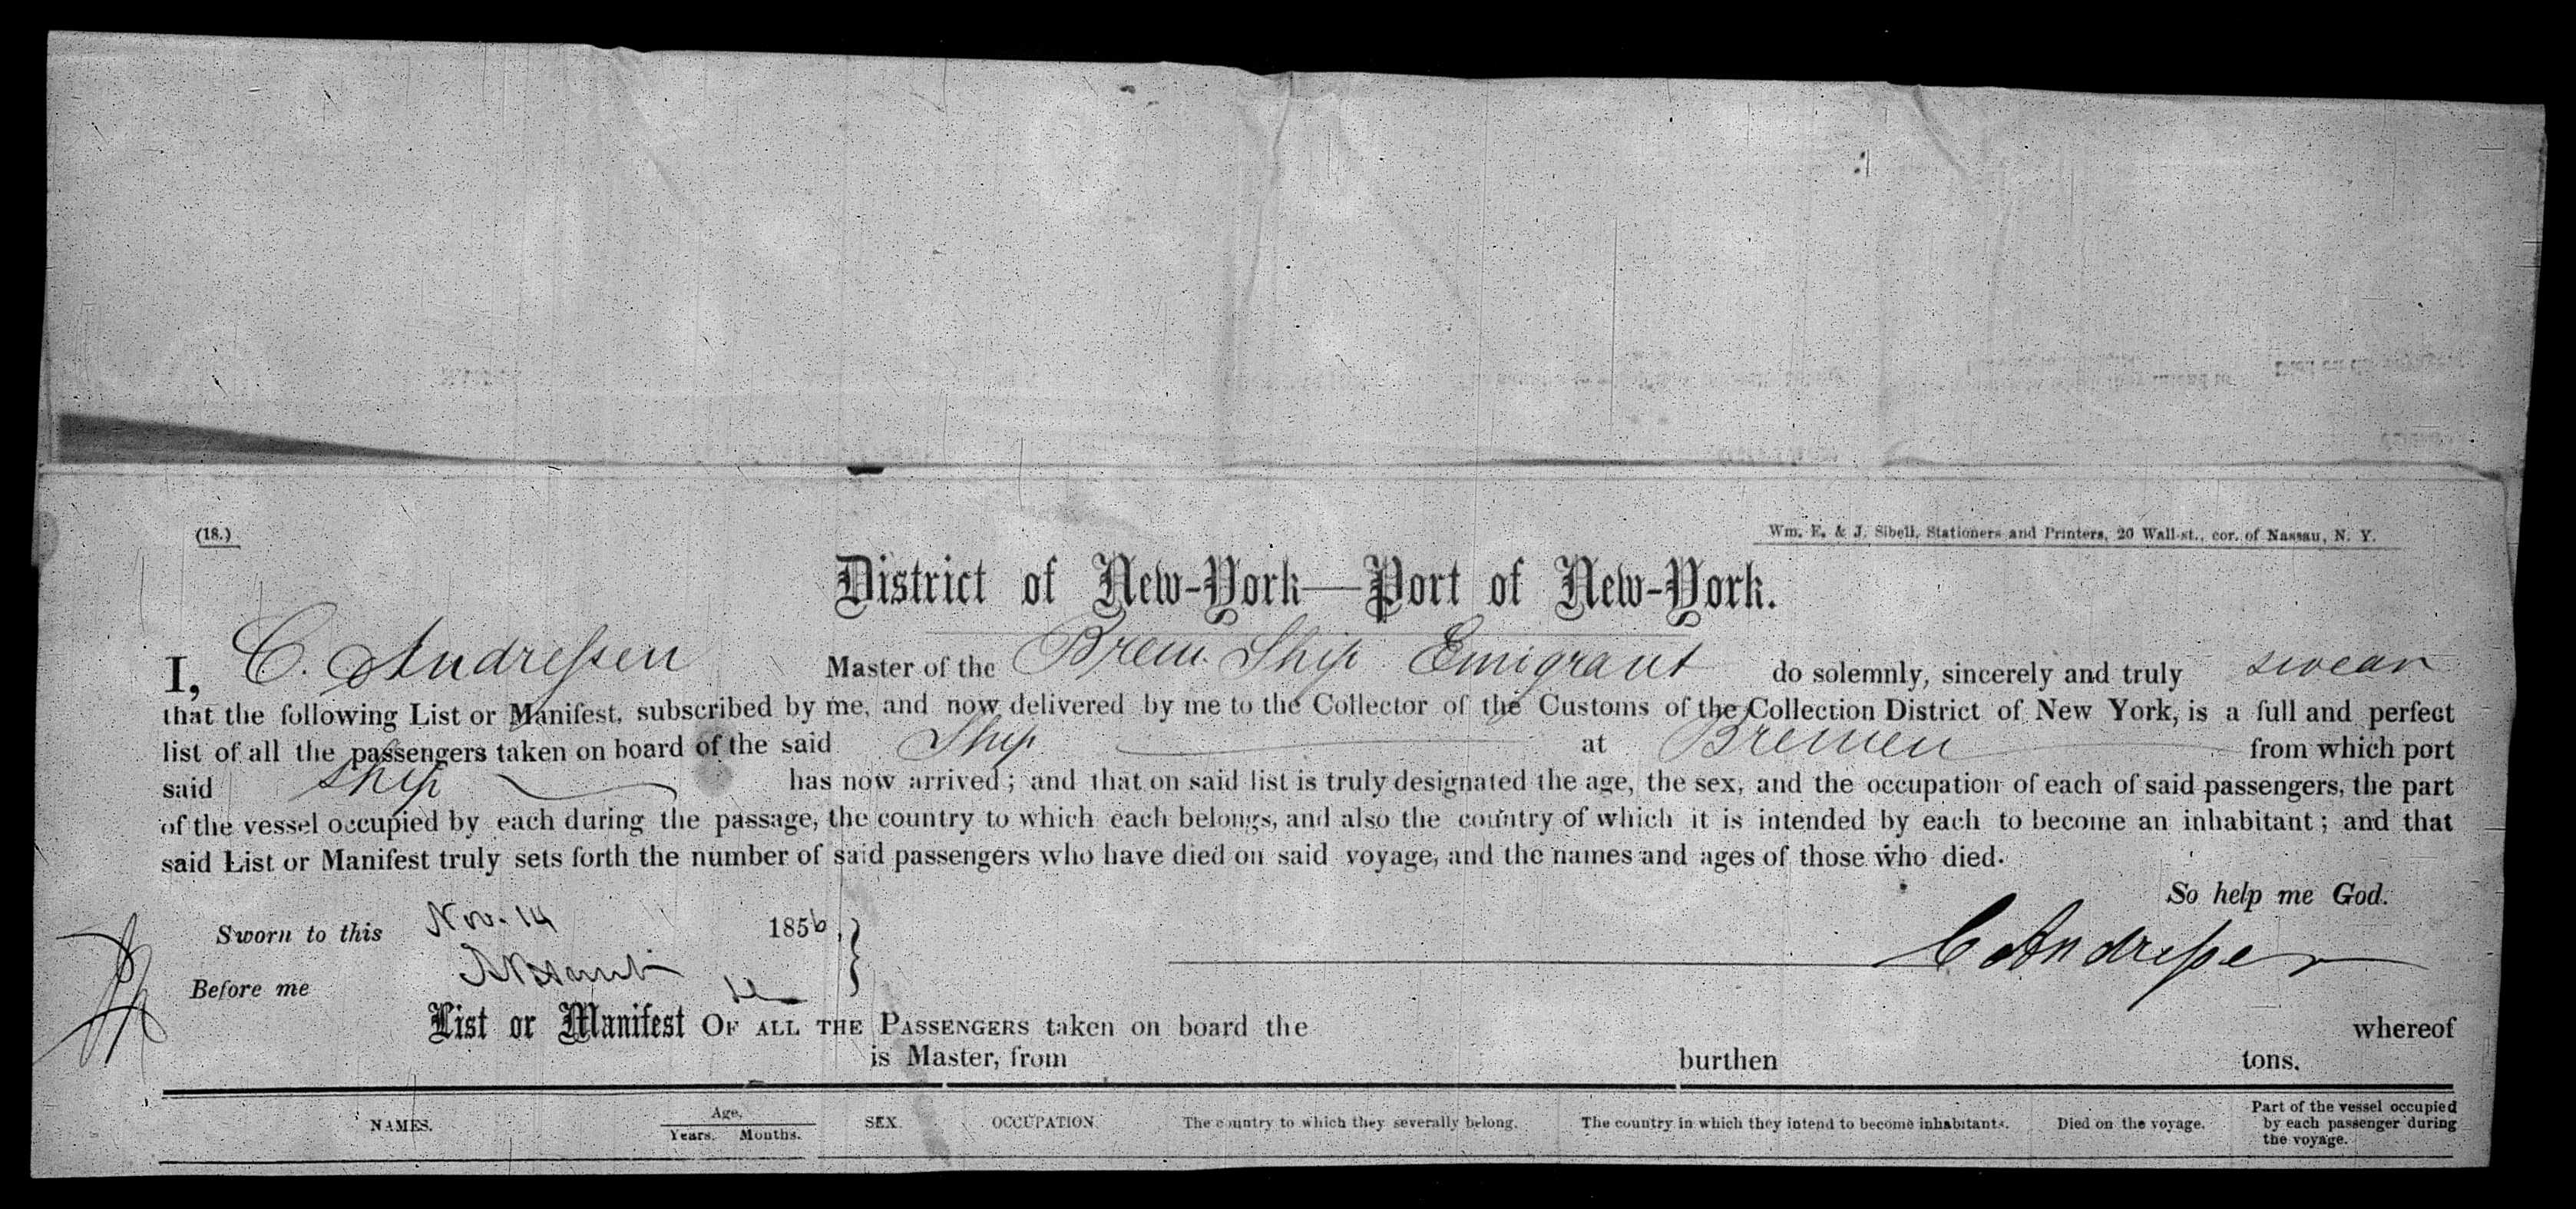 (18.)
Wm. E. & J. Sibell, Stationers and Printers, 20 Wall-st., cor. of Nassau, N. Y.
District of New-York—Port of New-York.
I, C. Andreſsen Master of the Brem. Ship Emigrant do solemnly, sincerely and truly swear
that the following List or Manifest, subscribed by me, and now delivered by me to the Collector of the Customs of the Collection District of New York, is a full and perfect
list of all the passengers taken on board of the said Ship at Bremen from which port
said Ship has now arrived; and that on said list is truly designated the age, the sex, and the occupation of each of said passengers, the part
of the vessel occupied by each during the passage, the country to which each belongs, and also the country of which it is intended by each to become an inhabitant; and that
said List or Manifest truly sets forth the number of said passengers who have died on said voyage, and the names and ages of those who died.
So help me God.
Sworn to this Nov. 14 1856.
C Andreſsen
Before me
List or Manifest OF ALL THE PASSENGERS taken on board the whereof
is Master, from burthen tons.
NAMES. Age, Years. Months. SEX. OCCUPATION. The country to which they severally belong. The country in which they intend to become inhabitants. Died on the voyage. Part of the vessel occupied by each passenger during the voyage.